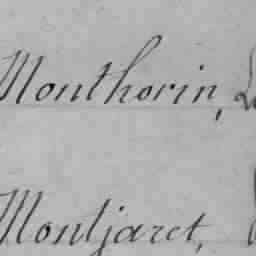 Monthorin,
Montjaret,